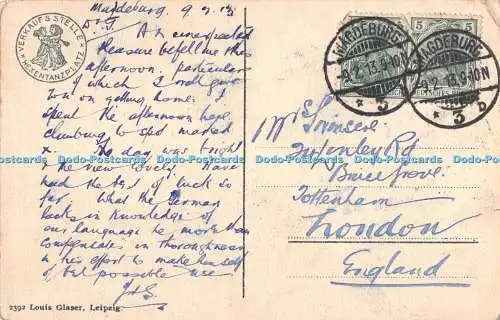 Magdeburg, 9.2.13
An unexpected
pleasure befell me this
afternoon, particulars
of which I shall give
you on getting home. I
spent the afternoon here,
climbing to spot marked
x. The day was bright
& the view lovely. Have
had the best of luck so
far. What the German
lacks in knowledge of
our language he more than
compensates in thoroughness
in his effort to make himself
of best possible use
VERKAUFSSTELLE
HEXENTANZPLATZ
2392 Louis Glaser, Leipzig.
MAGDEBURG
9.2.13.9-10N
* 3 b
MAGDEBURG
9.2.13.9-10N
* 3 b
5
5
Mrs
Rd
Bruce Grove
Tottenham
London
England
Postcards Postcards Postcards Postcards Postcards Postcards